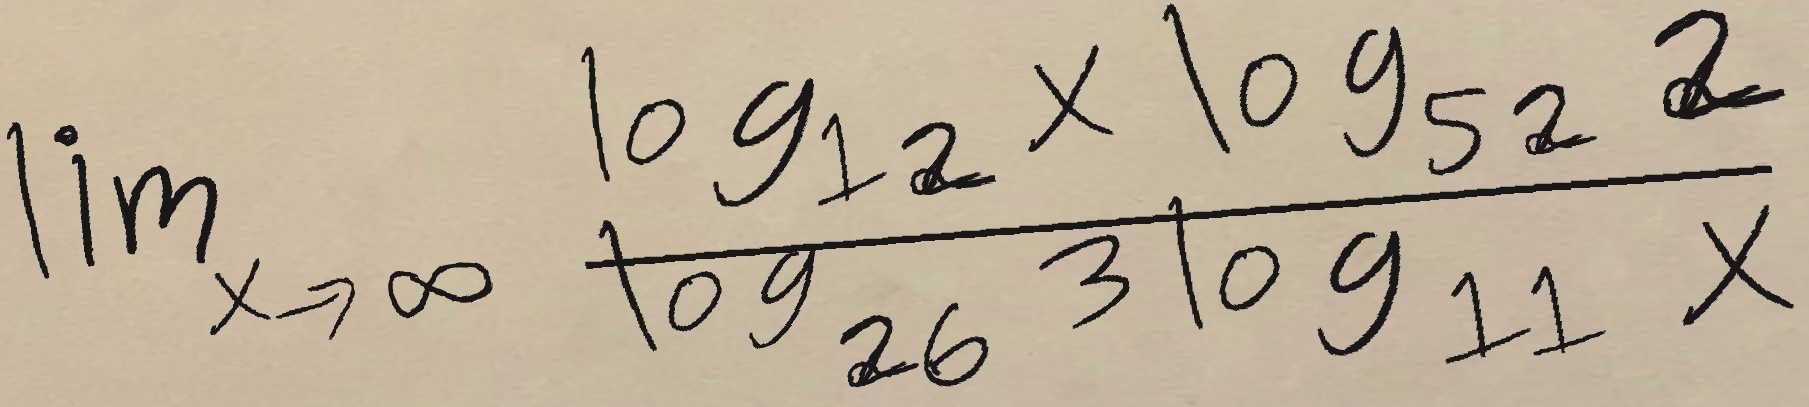 \lim_{x \to \infty} \frac{\log_{12} x \log_{52} 2}{\log_{26} 3 \log_{11} x}